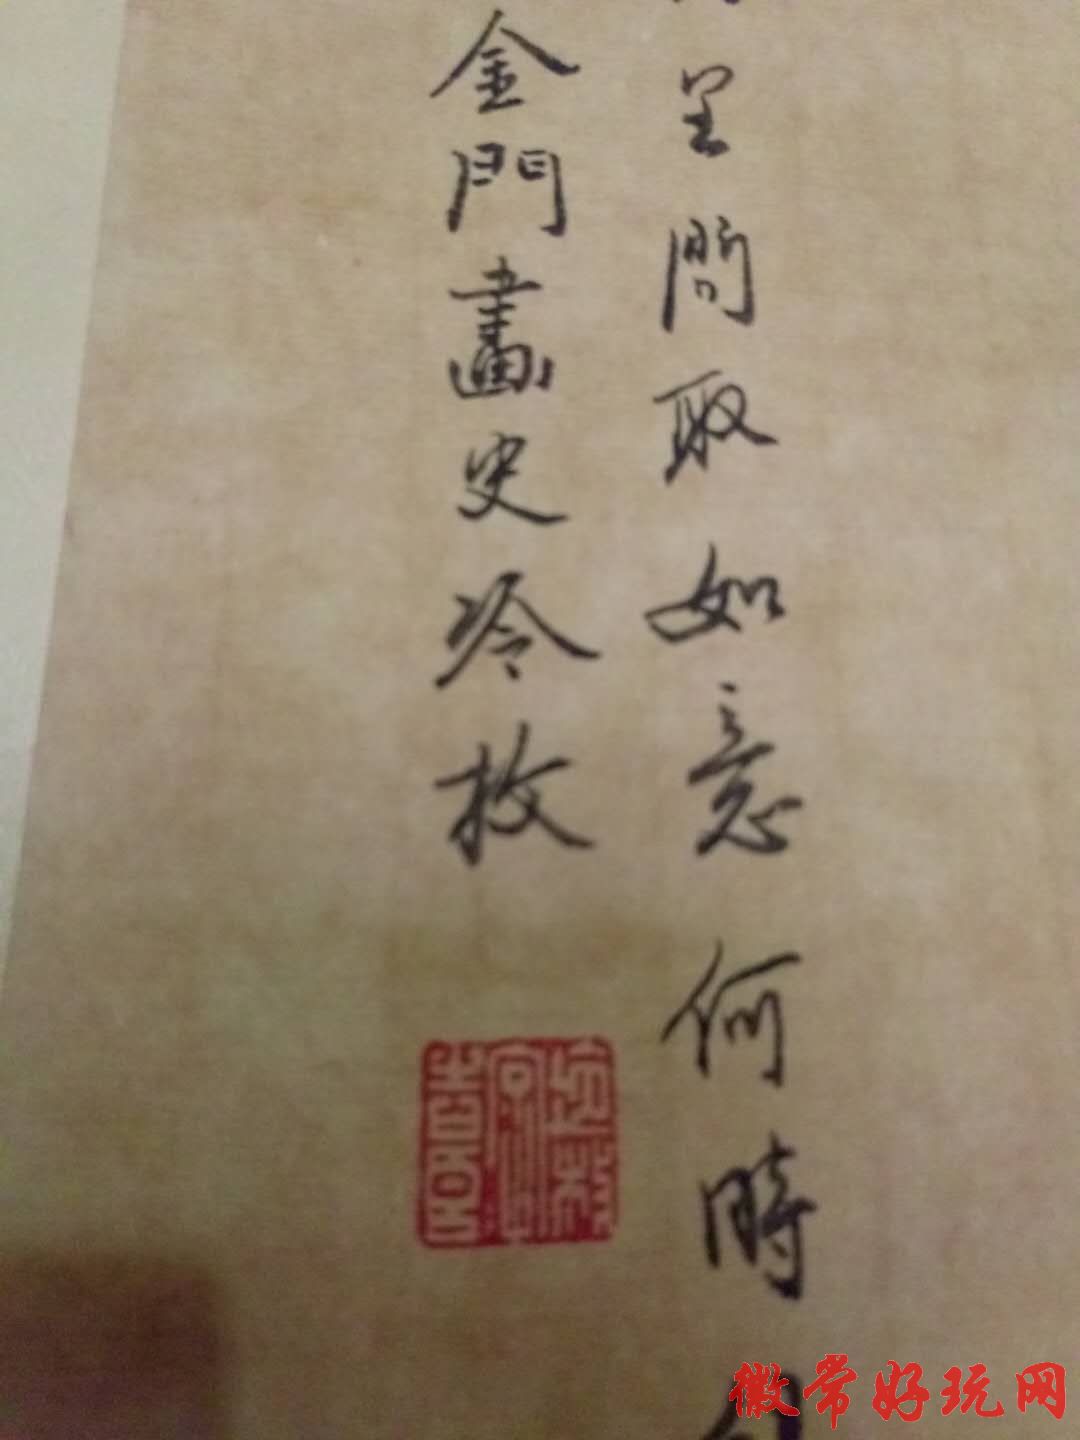 呈問取如意何時
金門畫史冷枚
徽常好玩网